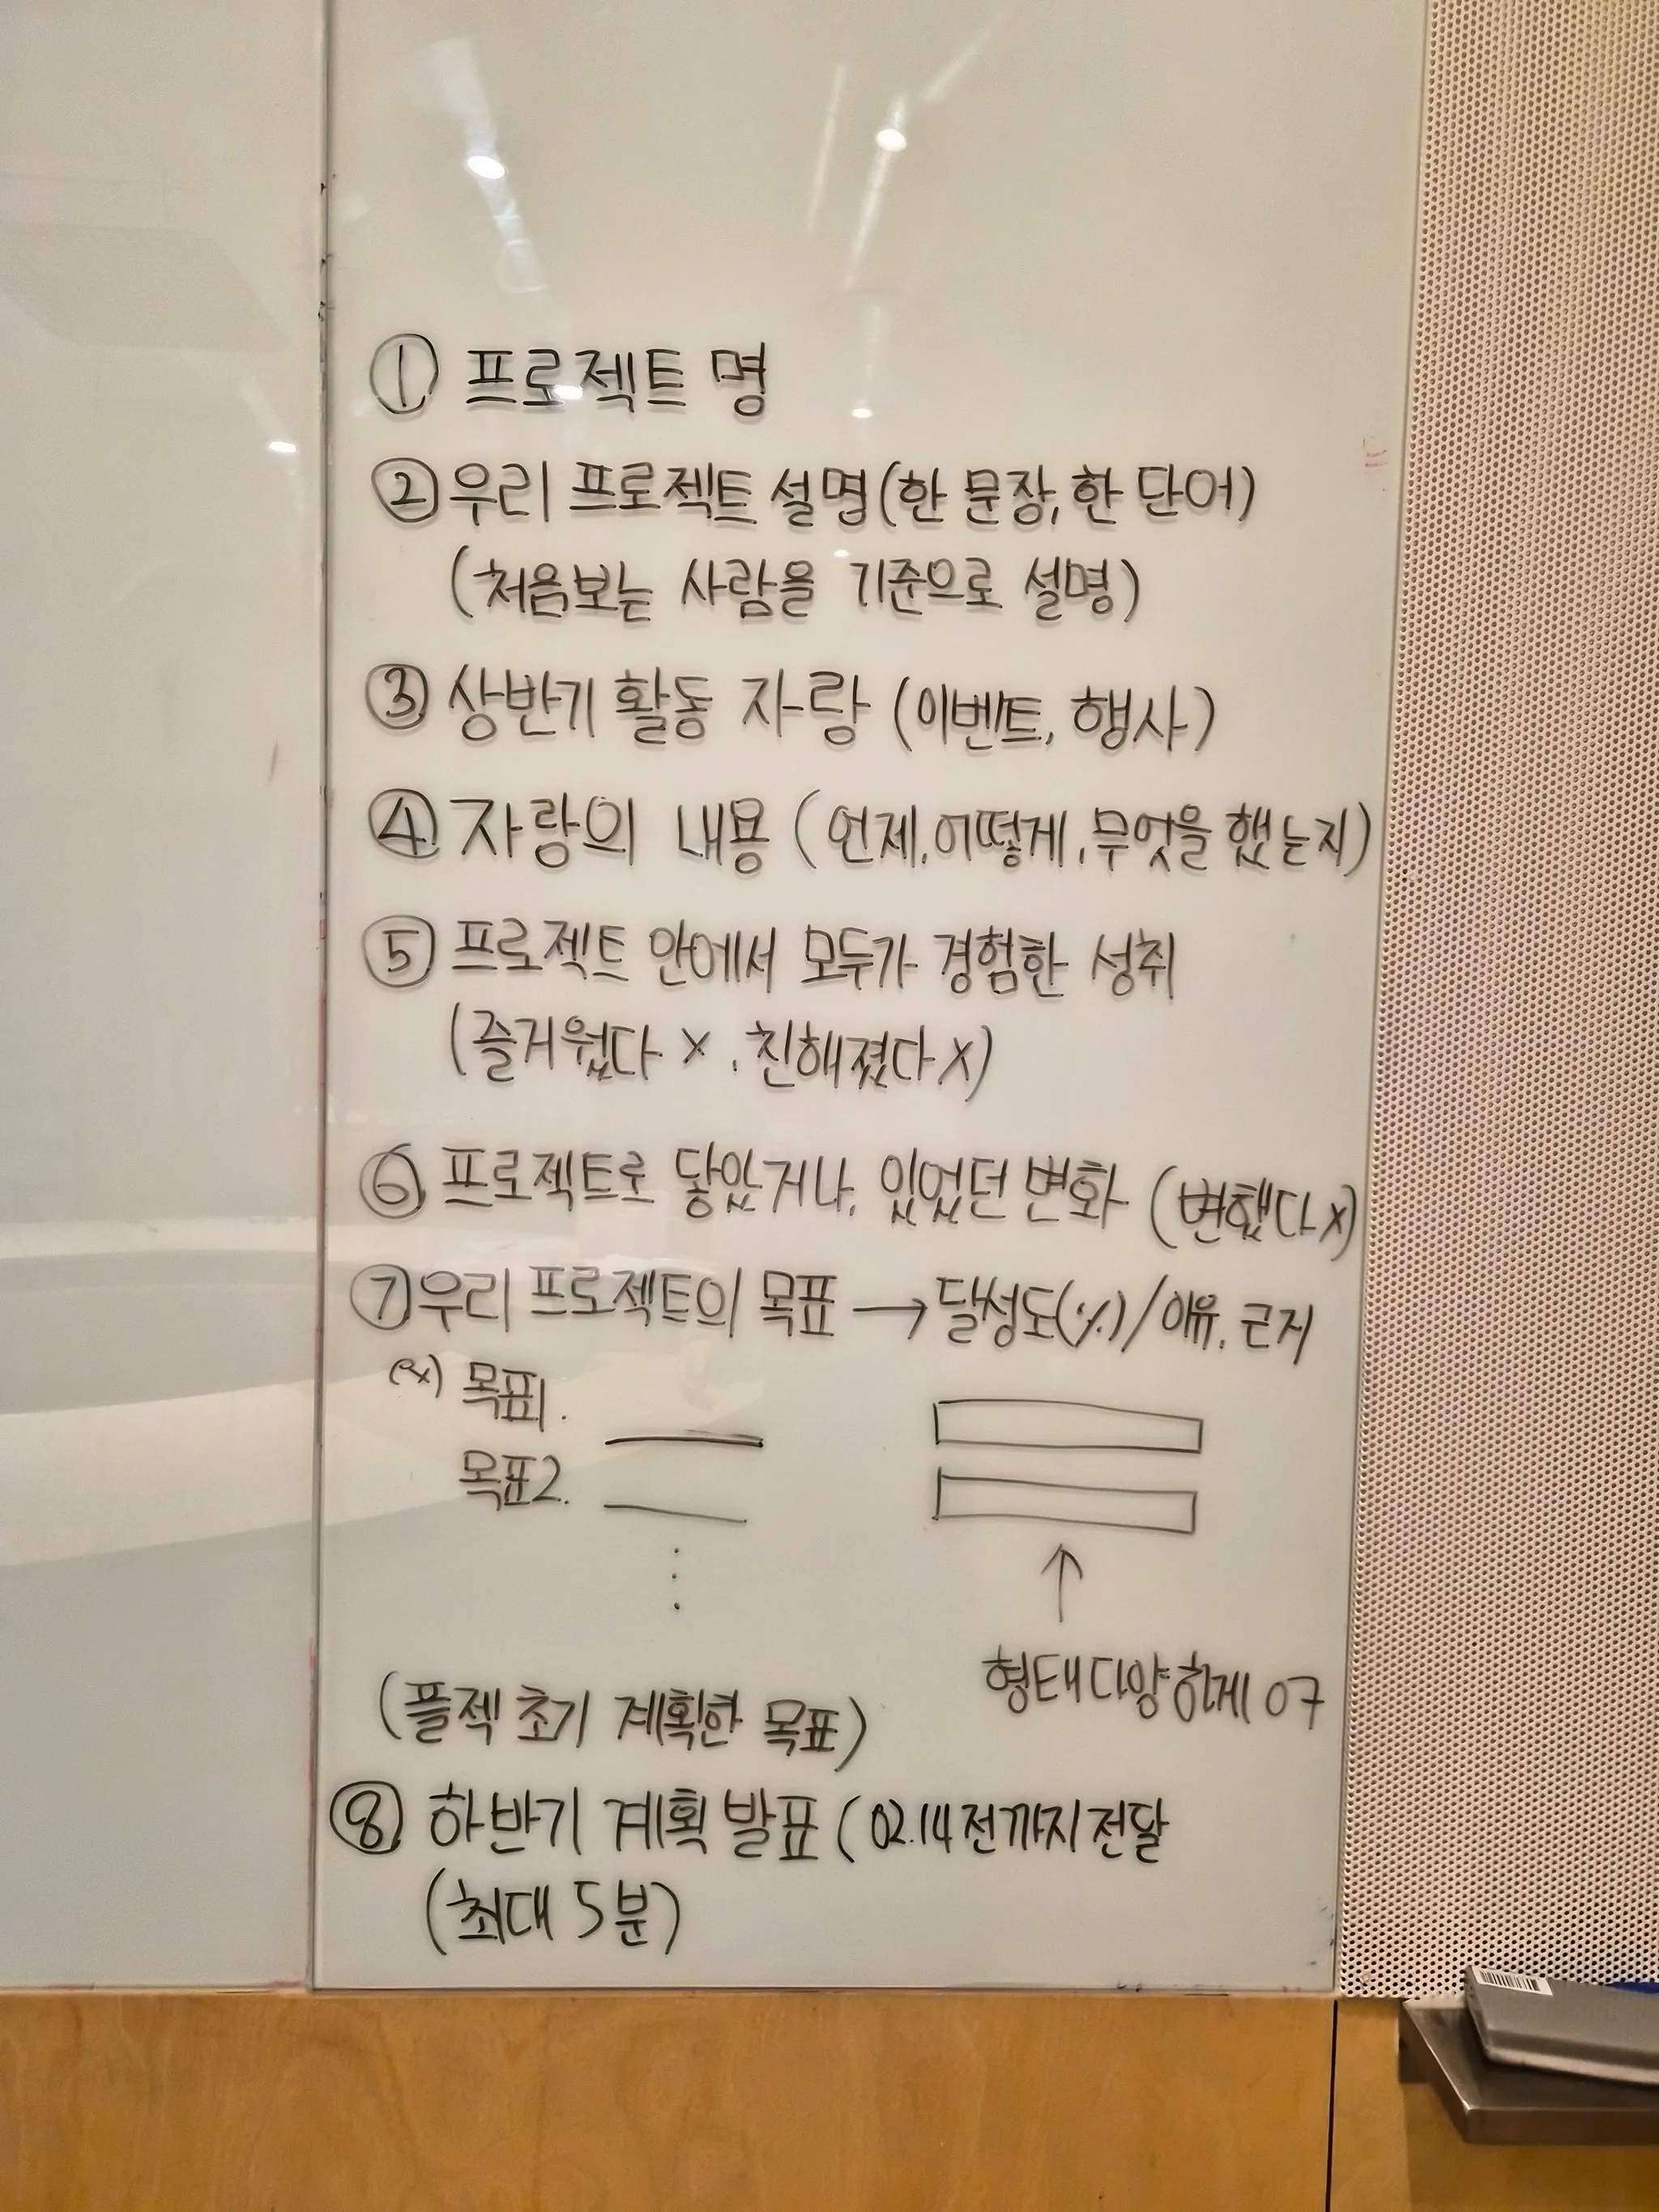 ① 프로젝트 명
② 우리 프로젝트 설명(한 문장, 한 단어)
(처음보는 사람을 기준으로 설명)
③ 상반기 활동 자랑 (이벤트, 행사)
④ 자랑의 내용 (언제, 어떻게, 무엇을 했는지)
⑤ 프로젝트 안에서 모두가 경험한 성취
(즐거웠다 X, 친해졌다 X)
⑥ 프로젝트로 닿았거나, 있었던 변화 (변했다 X)
⑦ 우리 프로젝트의 목표 → 달성도(%) / 이유, 근거
ex) 목표1.
목표2.
형태 다양하게 07
(플젝 초기 계획한 목표)
⑧ 하반기 계획 발표 (02.14 전까지 전달
(최대 5분)